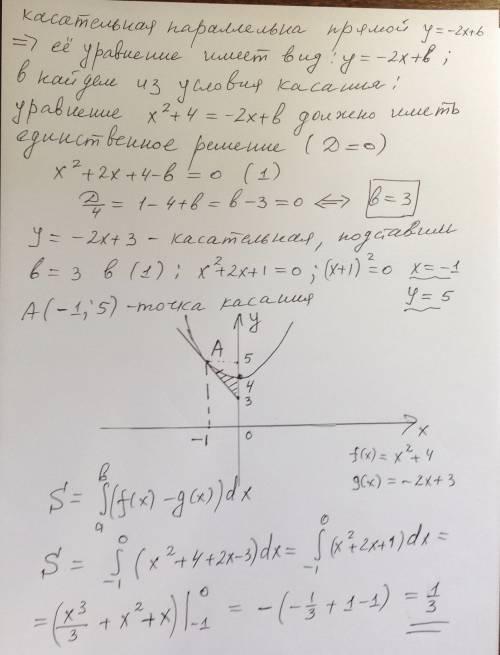 касательная параллельна прямой y=-2x+b
⇒ её уравнение имеет вид: y=-2x+b;
в найдем из условия касания:
уравнение x²+4=-2x+b должно иметь
единственное решение (D=0)
x²+2x+4-b=0 (1)
D/4 = 1-4+b=b-3=0 ⟺ b=3
y=-2x+3 - касательная, подставим
b=3 в (1); x²+2x+1=0; (x+1)²=0 x=-1
A(-1;5) - точка касания y=5
y
A
5
4
3
-1 0 x
f(x)=x²+4
g(x)=-2x+3
S=∫ₐᵇ(f(x)-g(x))dx
S=∫₋₁⁰(x²+4+2x-3)dx=∫₋₁⁰(x²+2x+1)dx=
=(x³/3+x²+x)|₋₁⁰ = -(-1/3+1-1) = 1/3